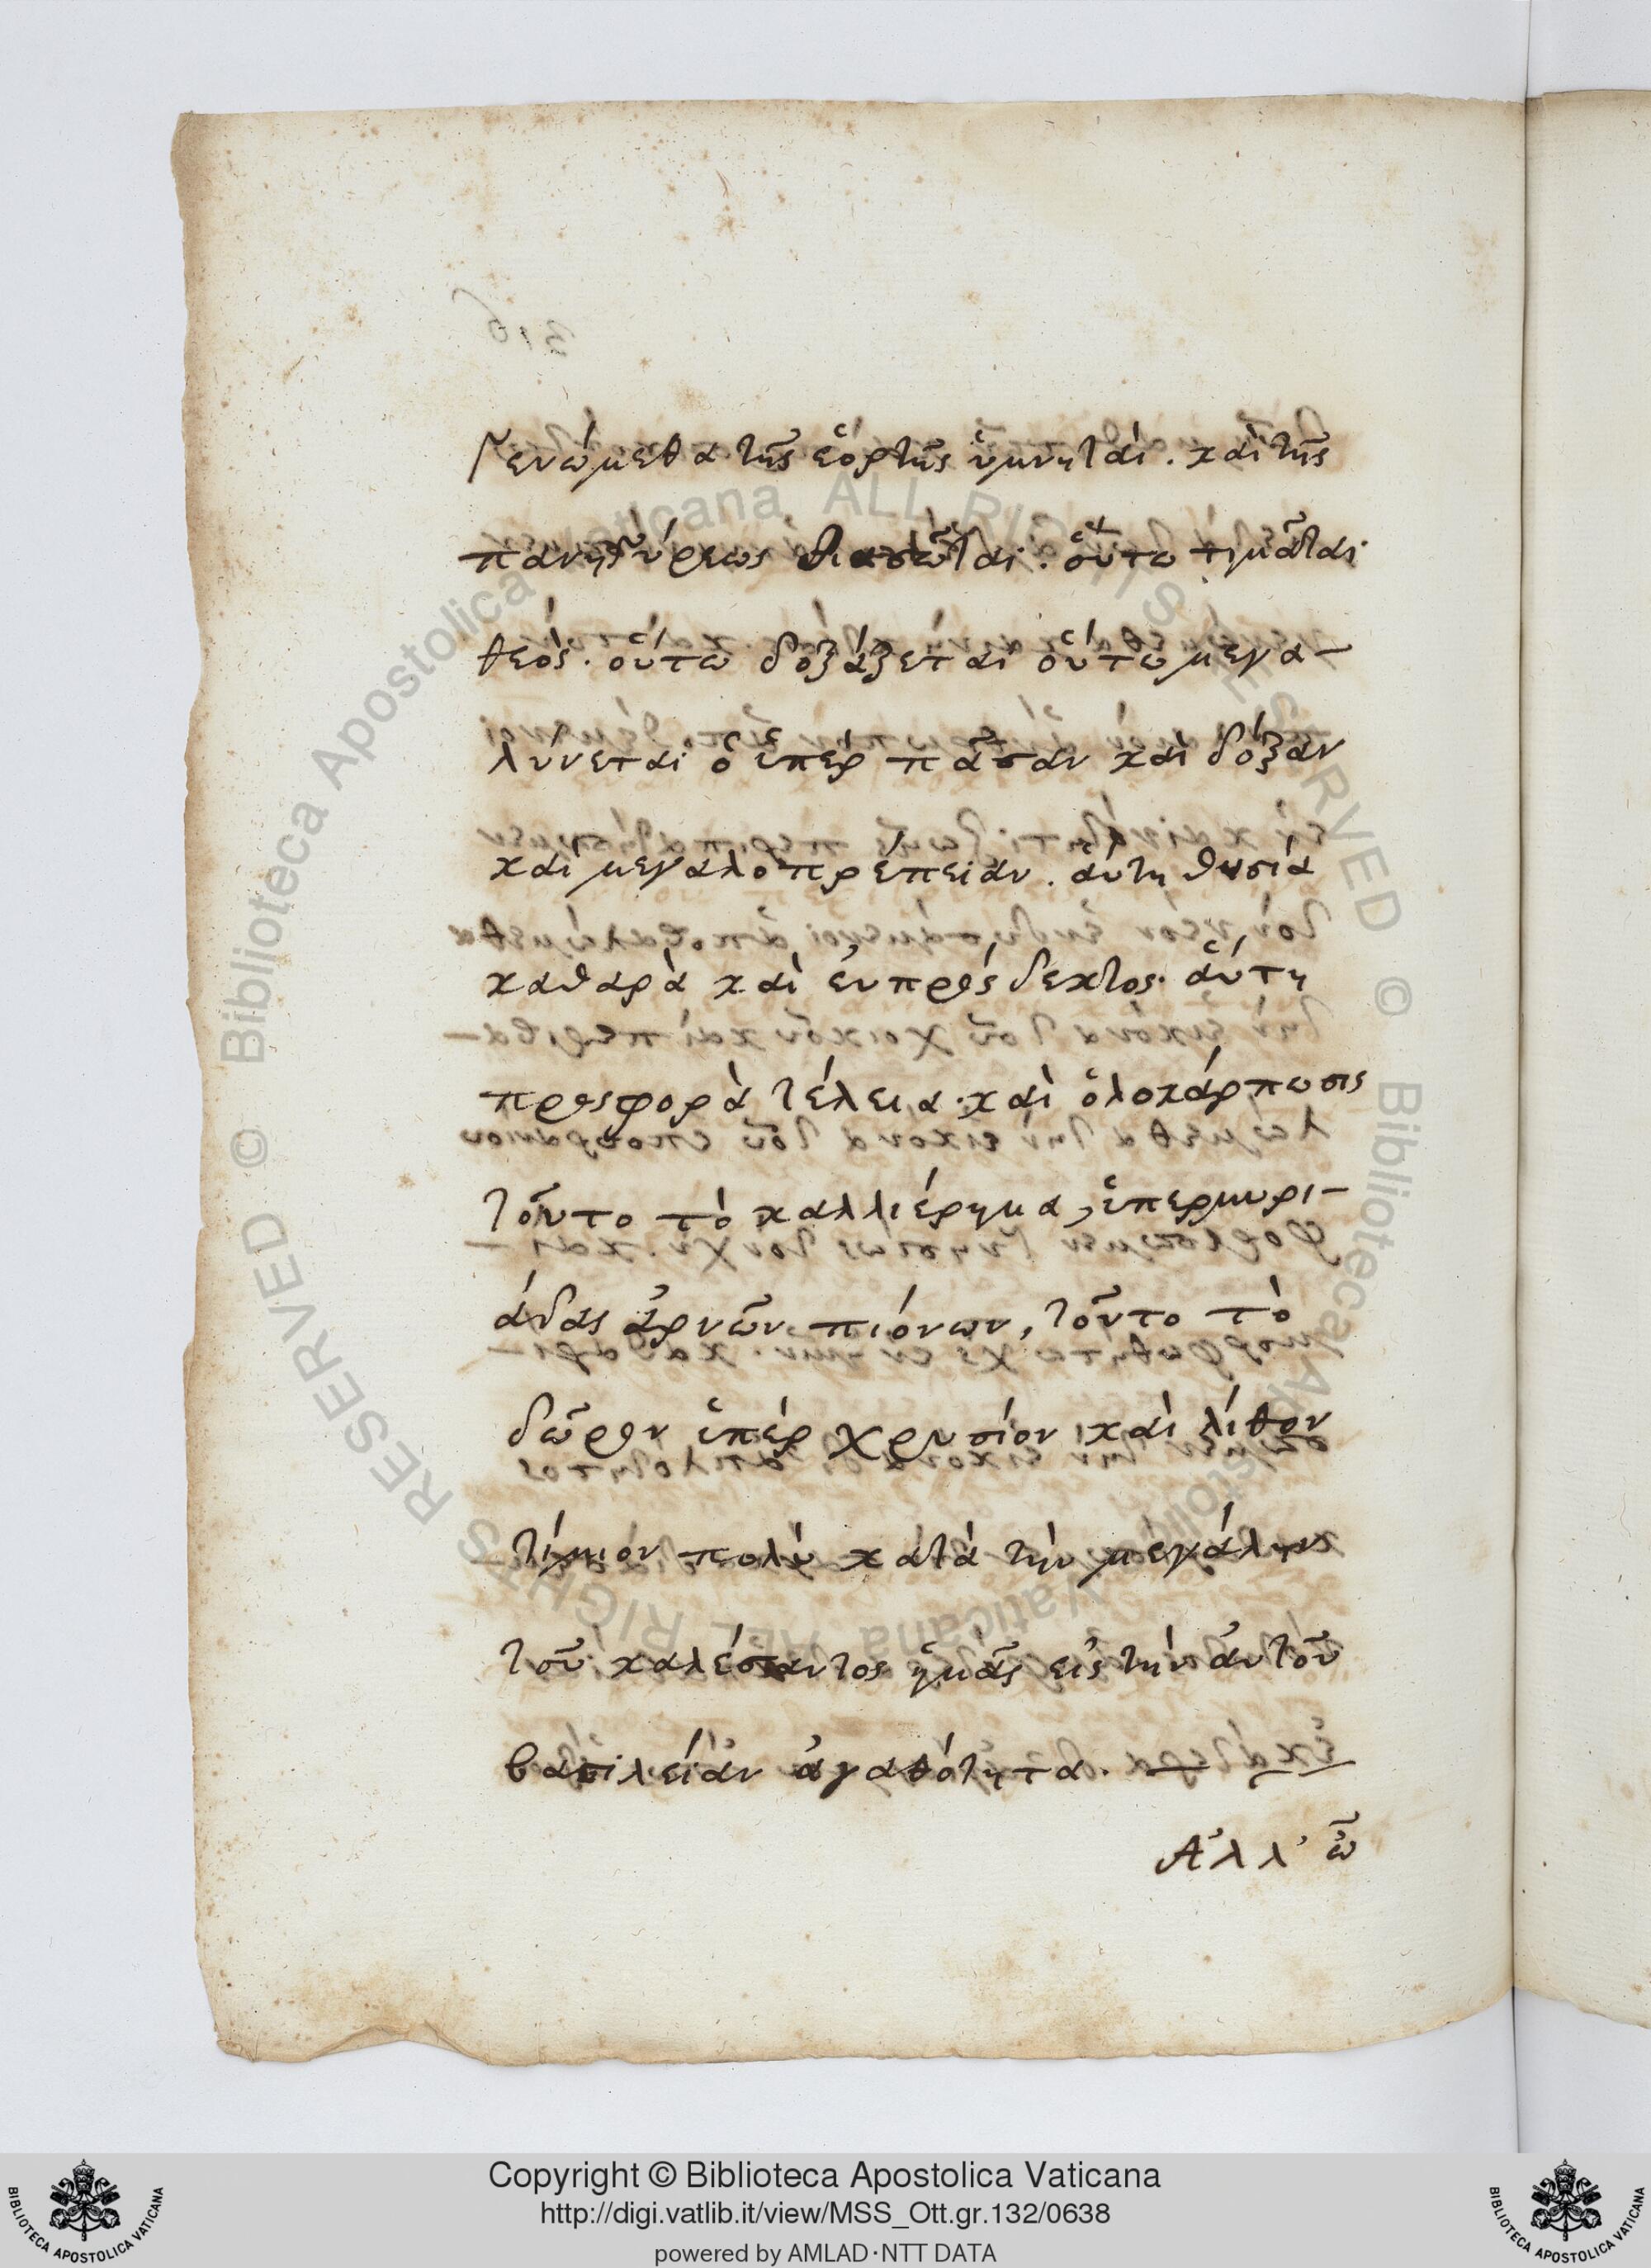 Γενώμεθα τῆς ἑορτῆς ὑμνηταί. καὶ τῆς
πανηγύρεως θιασῶται. οὕτω τιμᾶται
θεός. οὕτω δοξάζεται οὕτω μεγα-
λύνεται ὁ ὑπὲρ πᾶσαν καὶ δόξαν
καὶ μεγαλοπρέπειαν. αὕτη θυσία
καθαρὰ καὶ εὐπρόςδεκτος. αὕτη
προςφορὰ τέλεια. καὶ ὁλοκάρπωσις
τοῦτο τὸ καλλιέρημα, ὑπερμυρι-
άδας ἀρνῶν πιόνων, τοῦτο τὸ
δῶρον ὑπὲρ χρυσίον καὶ λίθον
τίμιον πολὺ κατὰ τὴν μεγάλην
τοῦ καλέσαντος ἡμᾶς εἰς τὴν αὐτοῦ
βασιλείαν ἀγαθότητα.
Ἀλλ' ὦ
Copyright © Biblioteca Apostolica Vaticana
http://digi.vatlib.it/view/MSS_Ott.gr.132/0638
powered by AMLAD·NTT DATA
BIBLIOTECA APOSTOLICA VATICANA
BIBLIOTECA APOSTOLICA VATICANA
© Biblioteca Apostolica Vaticana ALL RIGHTS RESERVED © Biblioteca Apostolica Vaticana ALL RIGHTS RESERVED